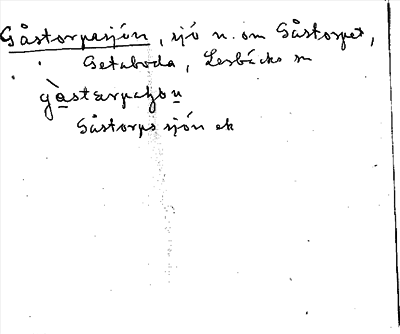 Gåstorpasjön, sjö n. om Gåstorpet,
Getaboda, Lerbäcks sn
gåstarpaʃon
Gåstorps sjön ek